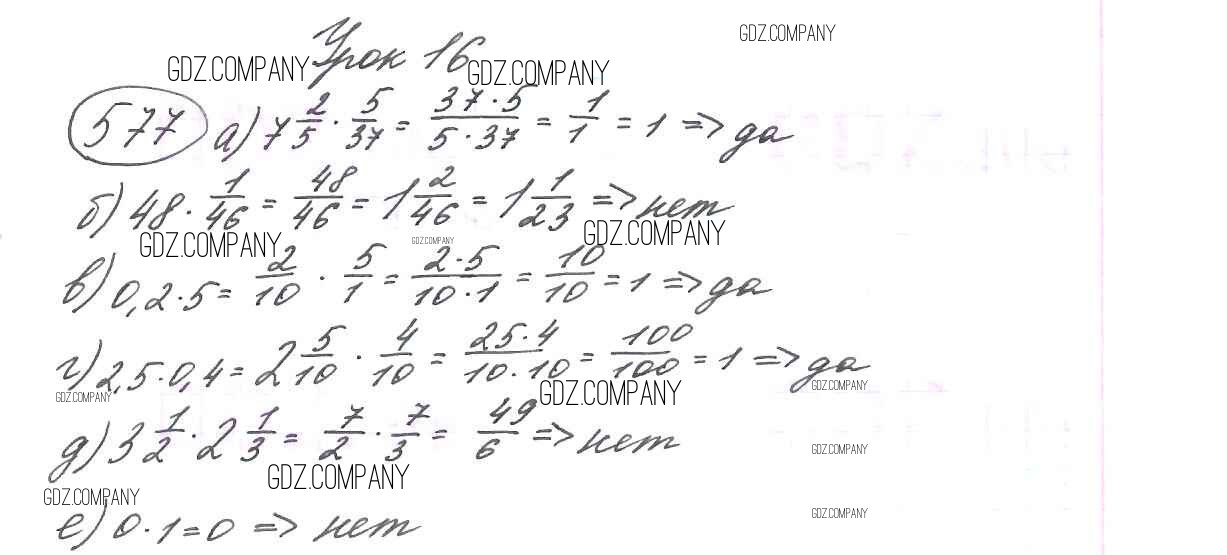 GDZ.COMPANY
Урок 16
GDZ.COMPANY GDZ.COMPANY
577 а) 7 2/5 · 5/37 = 37·5/5·37 = 1/1 = 1 => да
б) 48 · 1/46 = 48/46 = 1 2/46 = 1 1/23 => нет
GDZ.COMPANY GDZ.COMPANY GDZ.COMPANY
в) 0,2·5 = 2/10 · 5/1 = 2·5/10·1 = 10/10 = 1 => да
г) 2,5·0,4 = 2 5/10 · 4/10 = 25·4/10·10 = 100/100 = 1 => да
GDZ.COMPANY GDZ.COMPANY GDZ.COMPANY
д) 3 1/2 · 2 1/3 = 7/2 · 7/3 = 49/6 => нет
GDZ.COMPANY
GDZ.COMPANY
GDZ.COMPANY
е) 0·1=0 => нет
GDZ.COMPANY